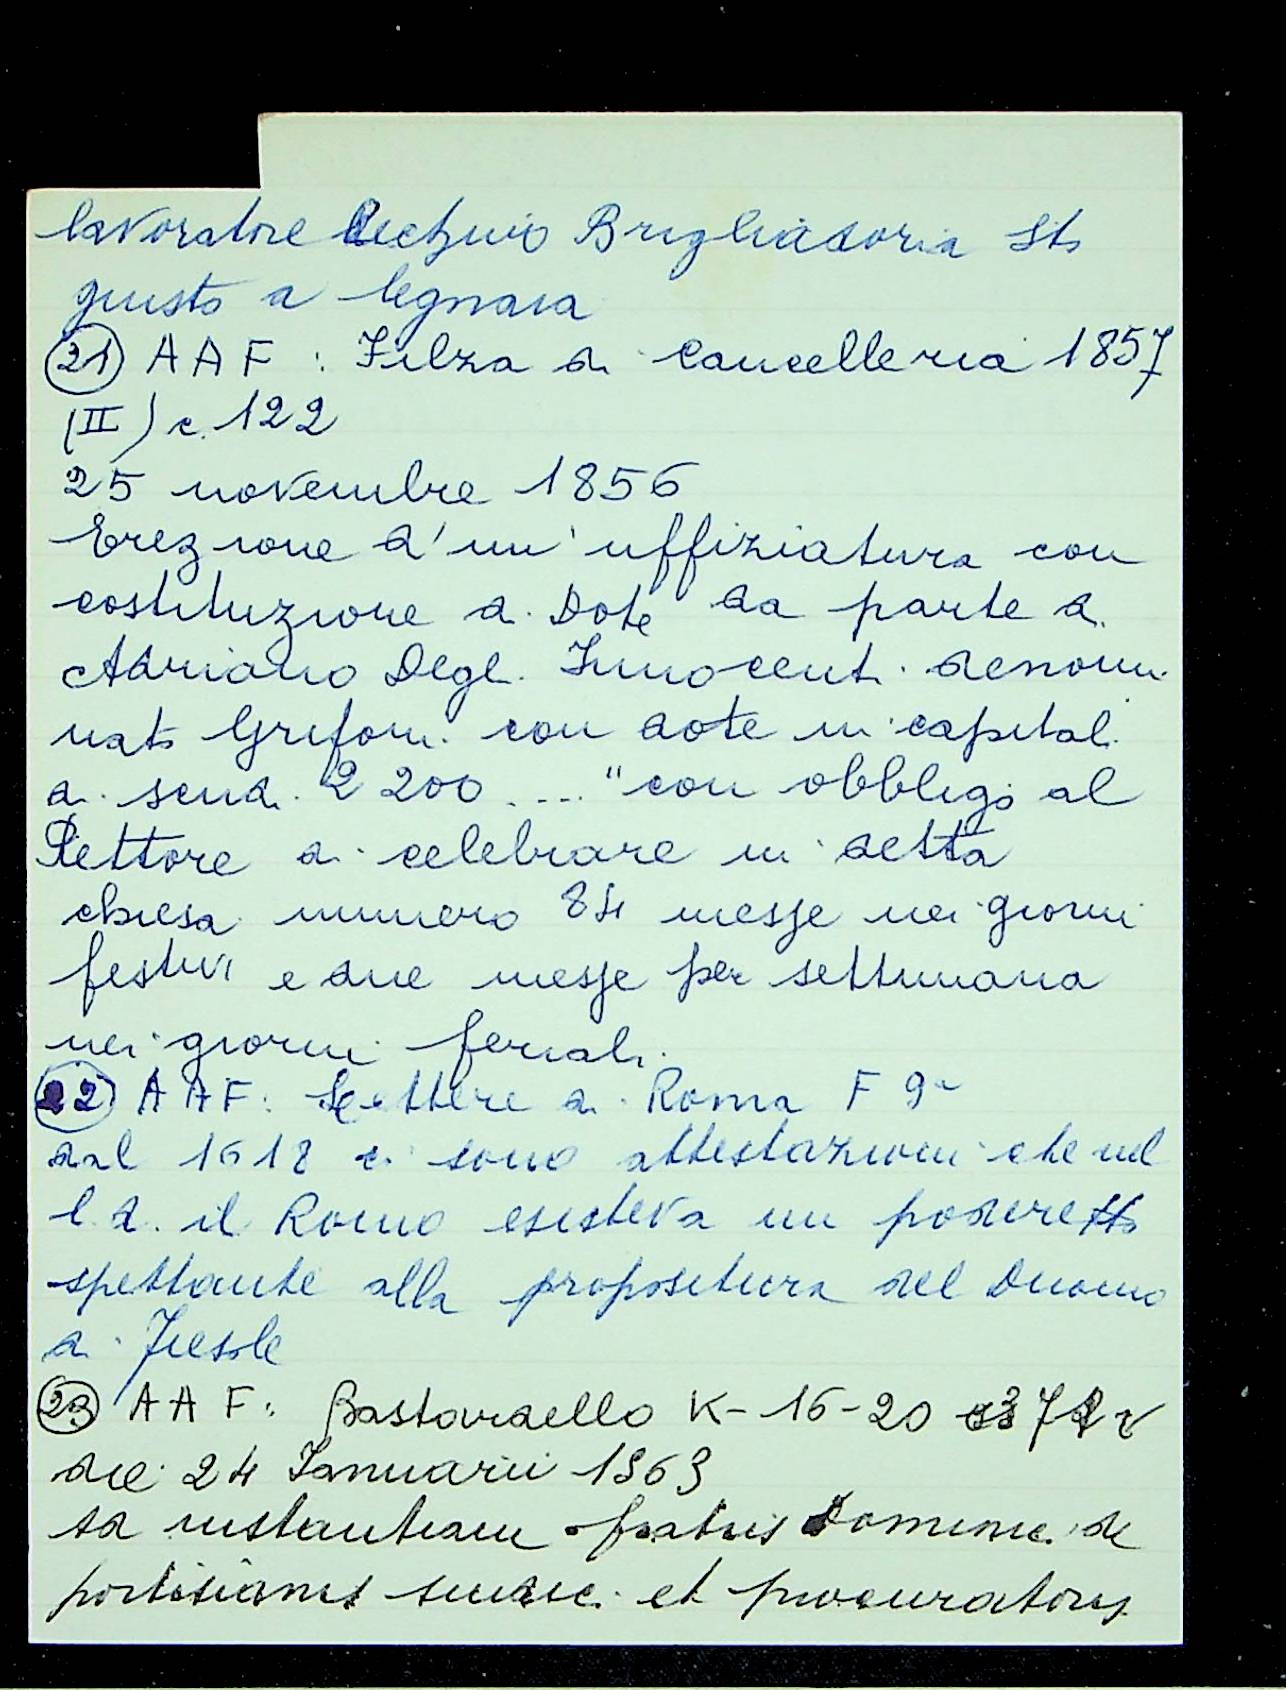 lavoratore Brigliadoria Sto
giusto a legnaia
(21) A A F : Filza di Cancelleria 1857
(II) c. 122
25 novembre 1856
Erezione d'un' uffiziatura con
costituzione di Dote da parte di
Adriano Degli Innocenti denomi
nato Grifoni con dote in capitali
di scudi 2200 .... "con obbligo al
Rettore di celebrare in detta
chiesa numero 84 messe nei giorni
festivi e due messe per settimana
nei giorni feriali.
(22) A A F: Lettere di Roma F 9a
dal 1618 ci sono attestazioni che nel
l.d. il Romo esisteva un poderetto
spettante alla propositura del Duomo
di Fiesole
(23) A A F: Bastardello K-16-20
die 24 Januarii 1563
ad instantiam fratris Dominici de
et procuratoris